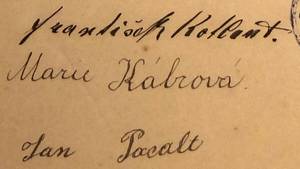 František Kolbent.
Marie Kábrová.
Jan Pacalt